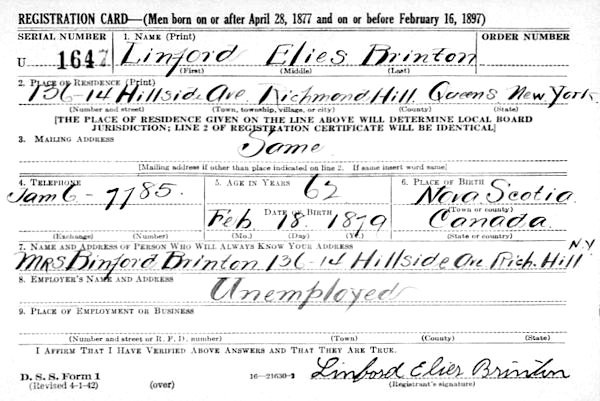 REGISTRATION CARD—(Men born on or after April 28, 1877 and on or before February 16, 1897)
SERIAL NUMBER 1. NAME (Print) ORDER NUMBER
U 1647 Linford Elies Brinton
(First) (Middle) (Last)
2. PLACE OF RESIDENCE (Print)
136-14 Hillside Ave Richmond Hill Queens New York
(Number and street) (Town, township, village, or city) (County) (State)
[THE PLACE OF RESIDENCE GIVEN ON THE LINE ABOVE WILL DETERMINE LOCAL BOARD
JURISDICTION; LINE 2 OF REGISTRATION CERTIFICATE WILL BE IDENTICAL]
3. MAILING ADDRESS
Same
[Mailing address if other than place indicated on line 2. If same insert word same]
4. TELEPHONE 5. AGE IN YEARS 6. PLACE OF BIRTH
Jam 6-7785. 62 Nova Scotia
DATE OF BIRTH (Town or county)
Feb 18. 1879 Canada
(Exchange) (Number) (Mo.) (Day) (Yr.) (State or country)
7. NAME AND ADDRESS OF PERSON WHO WILL ALWAYS KNOW YOUR ADDRESS
MRS Binford Brinton 136-14 Hillside Av Rich. Hill N.Y
8. EMPLOYER'S NAME AND ADDRESS
Unemployed
9. PLACE OF EMPLOYMENT OR BUSINESS
(Number and street or R. F. D. number) (Town) (County) (State)
I AFFIRM THAT I HAVE VERIFIED ABOVE ANSWERS AND THAT THEY ARE TRUE.
D. S. S. Form 1
(Revised 4-1-42) (over) 16—21630-2 Linford Elier Brinton
(Registrant's signature)